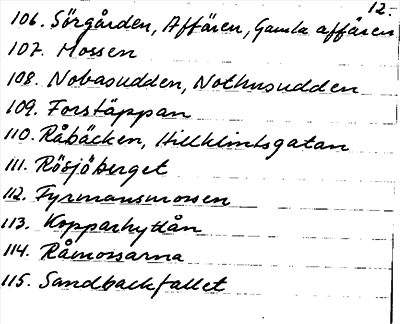 12.
106. Sörgården, Affären, Gamla affären
107. Mossen
108. Nobasudden, Nothusudden
109. Forstäppan
110. Råbäcken, Hillklintsgatan
111. Rösjöberget
112. Fyrmansmossen
113. Kopparhyttån
114. Råmossarna
115. Sandbackfallet